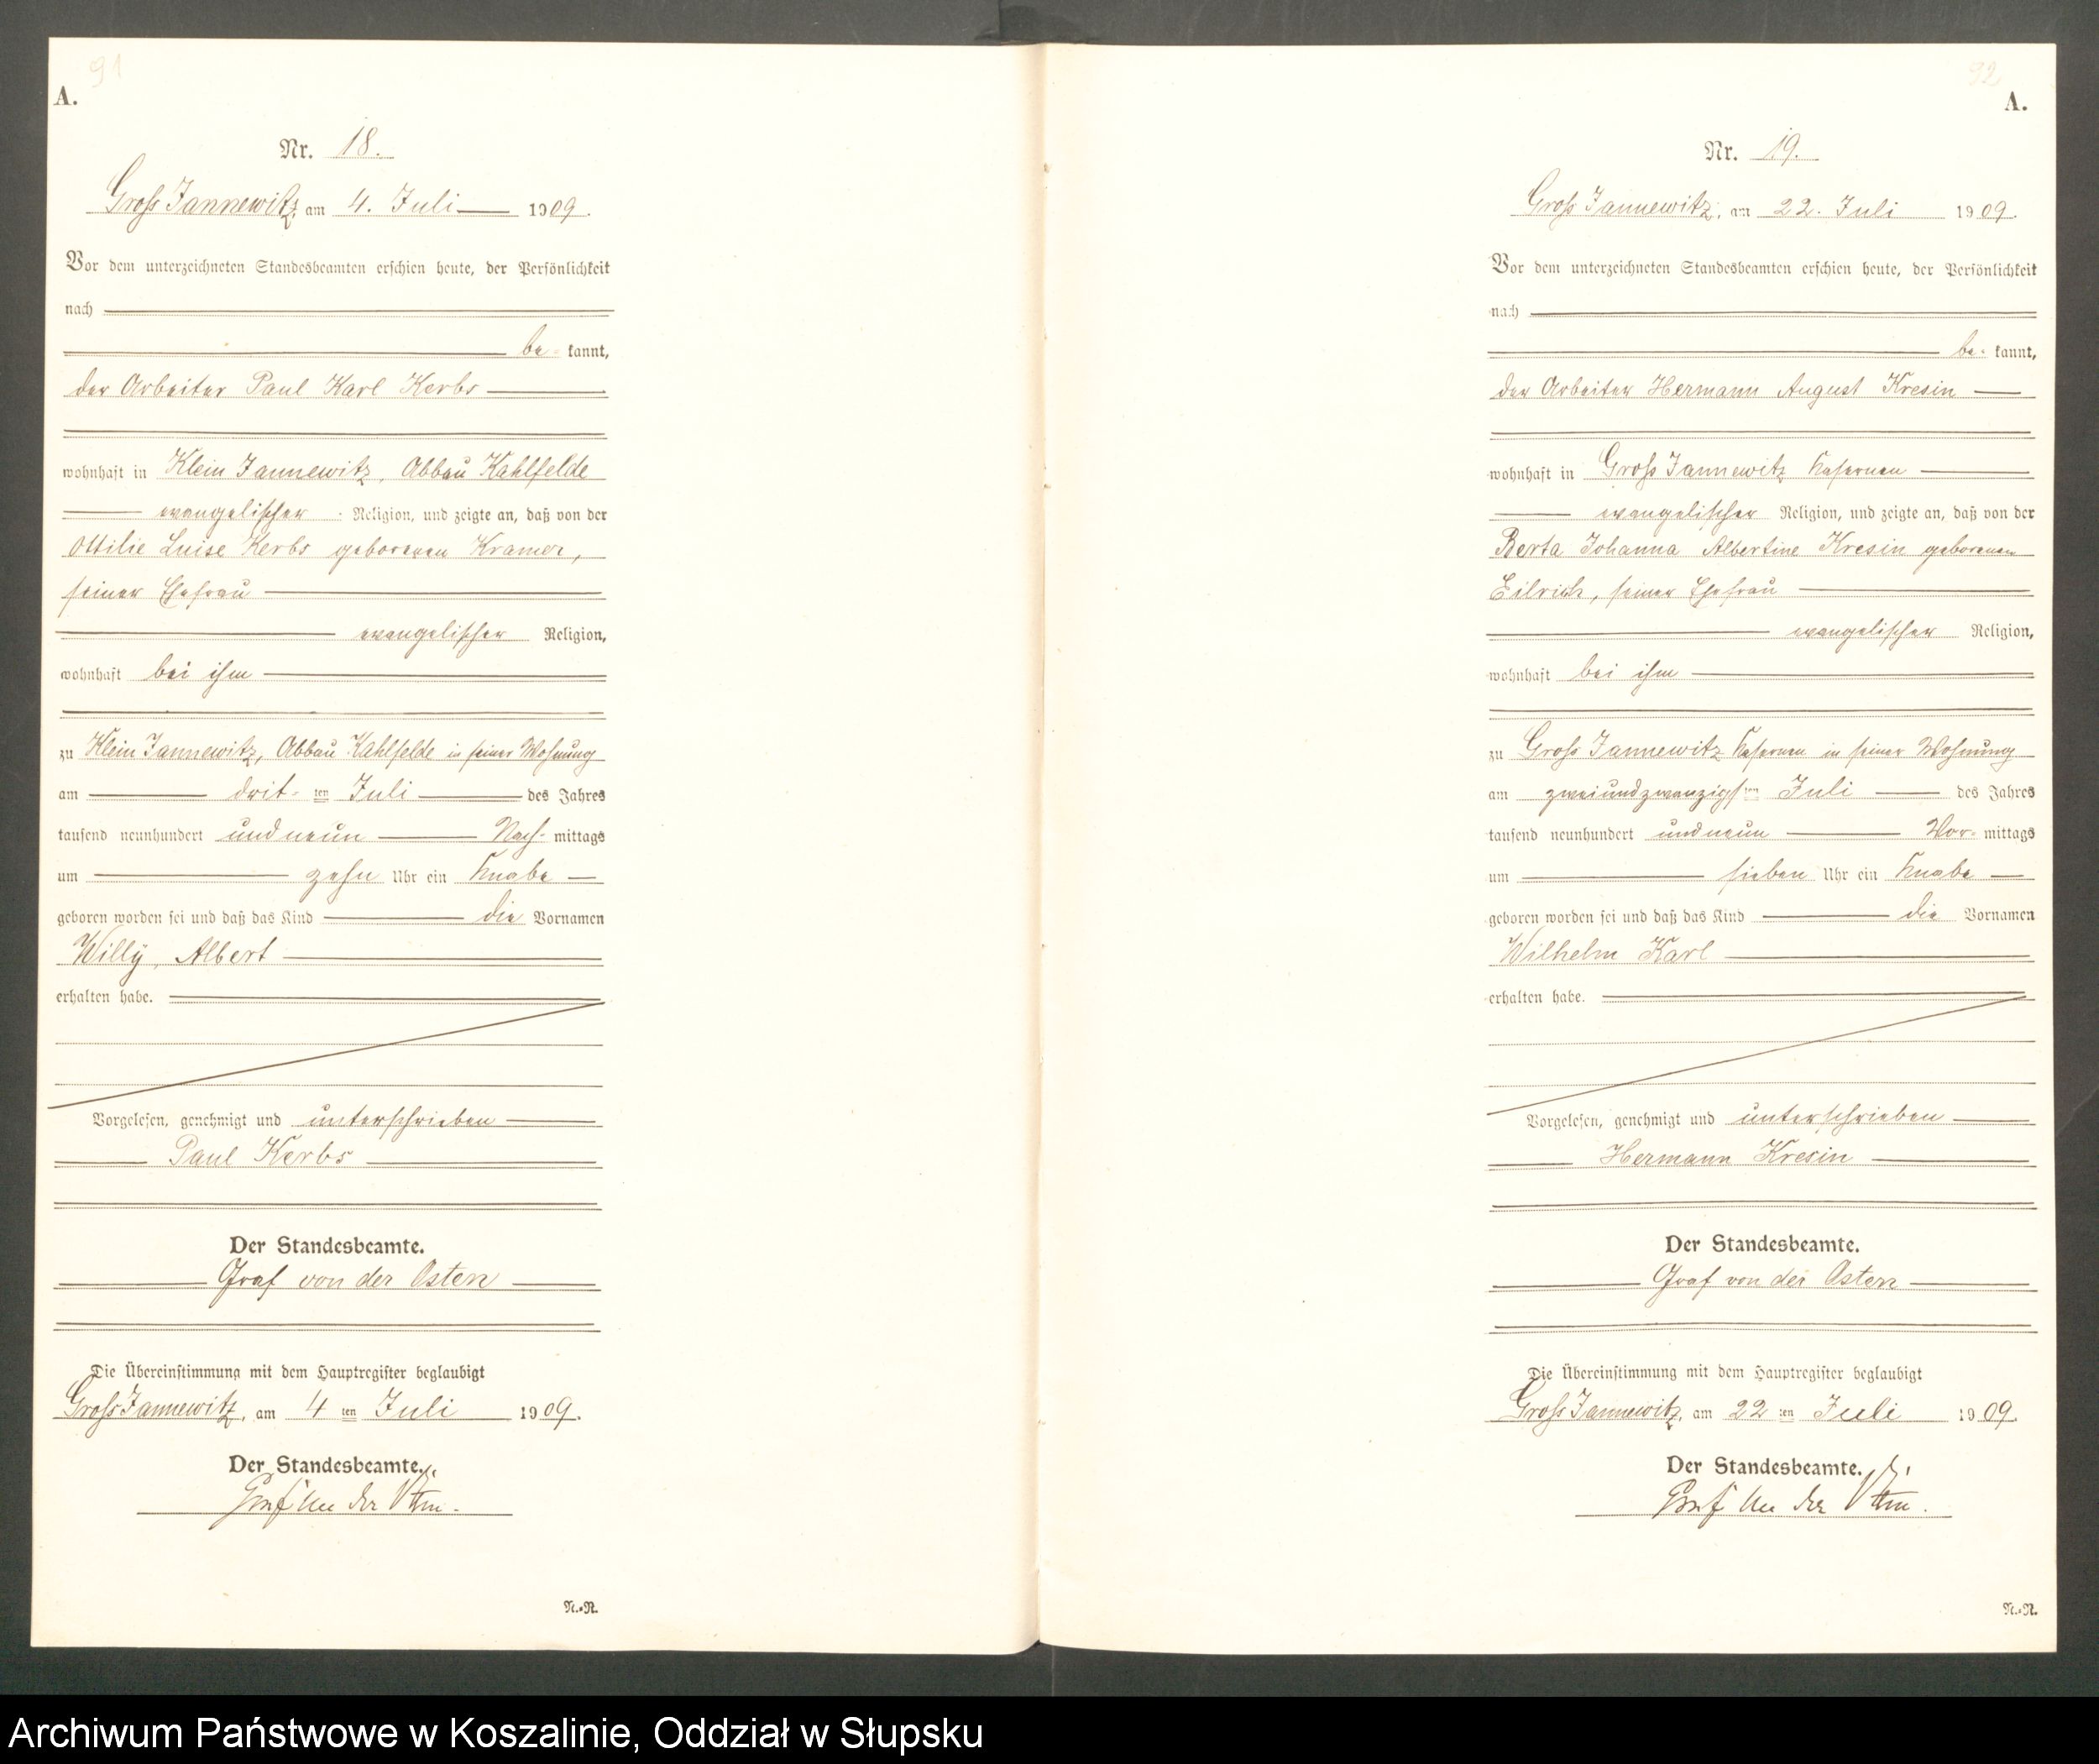 91
A.
Nr. 18.
Groß Jannewitz am 4. Juli 1909.
Vor dem unterzeichneten Standesbeamten erschien heute, der Persönlichkeit
nach
be- kannt,
der Arbeiter Paul Karl Kerbs
wohnhaft in Klein Jannewitz, Abbau Kahlfelde
evangelischer Religion, und zeigte an, daß von der
Ottilie Luise Kerbs geborenen Kramer,
seiner Ehefrau
evangelischer Religion,
wohnhaft bei ihm
zu Klein Jannewitz, Abbau Kahlfelde in seiner Wohnung
am drit- ten Juli des Jahres
tausend neunhundert und neun Nach- mittags
um zehn Uhr ein Knabe
geboren worden sei und daß das Kind die Vornamen
Willy, Albert
erhalten habe.
Vorgelesen, genehmigt und unterschrieben
Paul Kerbs
Der Standesbeamte.
Graf von der Osten
Die Übereinstimmung mit dem Hauptregister beglaubigt
Groß Jannewitz, am 4 ten Juli 1909.
Der Standesbeamte.
Graf von der Osten.
N.=R.
92
A.
Nr. 19.
Groß Jannewitz, am 22. Juli 1909.
Vor dem unterzeichneten Standesbeamten erschien heute, der Persönlichkeit
nach
be- kannt,
der Arbeiter Hermann August Kresin
wohnhaft in Groß Jannewitz Kasernen
evangelischer Religion, und zeigte an, daß von der
Berta Johanna Albertine Kresin geborenen
Eilrich, seiner Ehefrau
evangelischer Religion,
wohnhaft bei ihm
zu Groß Jannewitz Kasernen in seiner Wohnung
am zweiundzwanzigsten Juli des Jahres
tausend neunhundert und neun Vor- mittags
um sieben Uhr ein Knabe
geboren worden sei und daß das Kind die Vornamen
Wilhelm Karl
erhalten habe.
Vorgelesen, genehmigt und unterschrieben
Hermann Kresin
Der Standesbeamte.
Graf von der Osten
Die Übereinstimmung mit dem Hauptregister beglaubigt
Groß Jannewitz, am 22 ten Juli 1909.
Der Standesbeamte.
Graf von der Osten.
N.=R.
Archiwum Państwowe w Koszalinie, Oddział w Słupsku